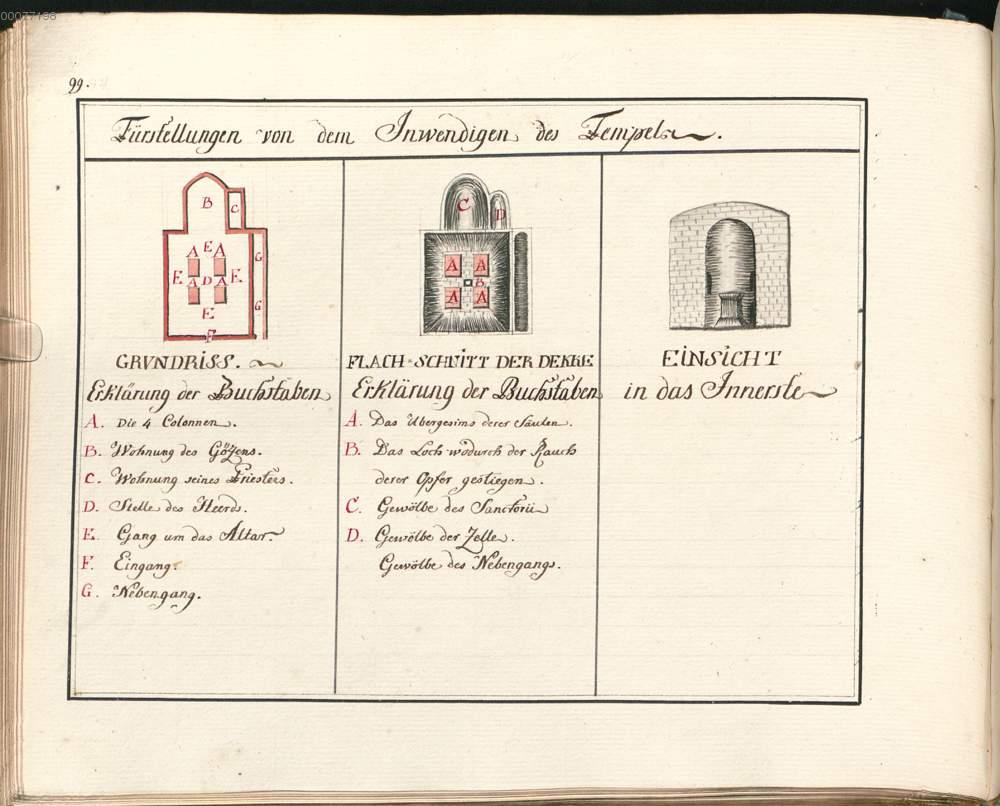 00077198
99.
Fürstellungen von dem Inwendigen des Tempels.
B
C
E
A A
G
E D E
A A
E
G
F
C
D
A A
B
A A
GRVNDRiSS.
Erklärung der Buchstaben
A. Die 4 Colonnen.
B. Wohnung des Götzens.
C. Wohnung seines Priesters.
D. Stelle des Heerds.
E. Gang um das Altar.
F. Eingang.
G. Nebengang.
FLACH-SCHNITT DER DEKKE
Erklärung der Buchstaben
A. Das Ubergesims derer Säulen.
B. Das Loch wodurch der Rauch
derer Opfer gestiegen.
C. Gewölbe des Sanctorii
D. Gewölbe der Zelle.
Gewölbe des Nebengangs.
EiNSiCHT
in das Innerste